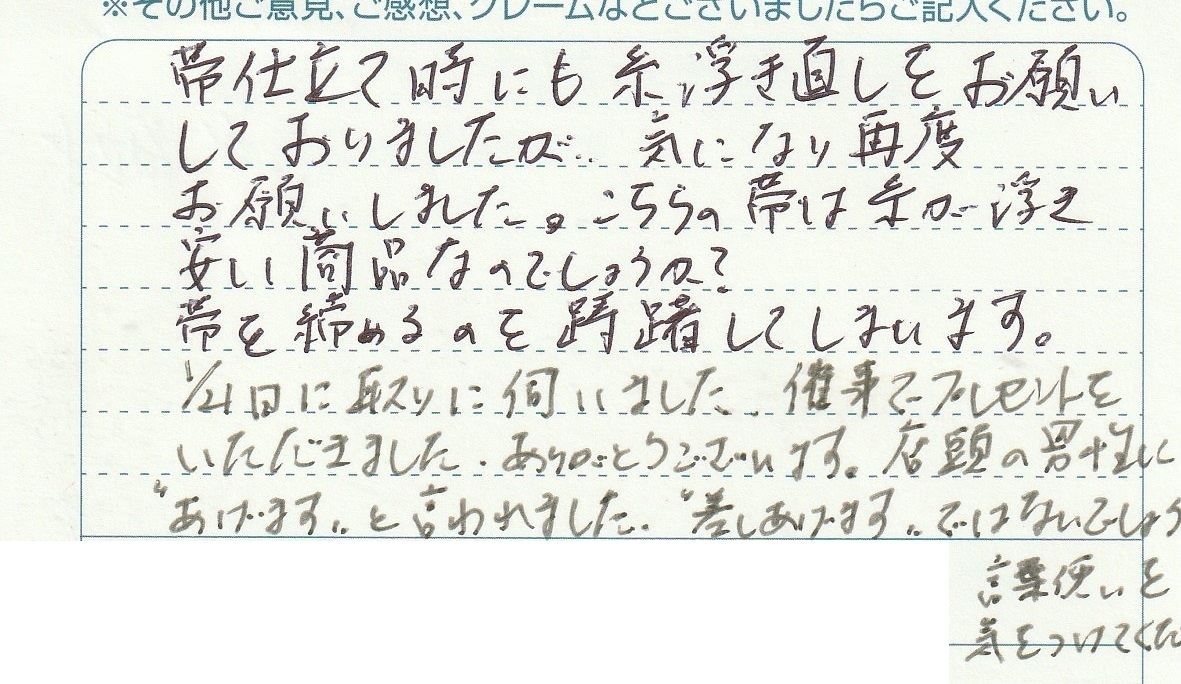 ※その他ご意見、ご感想、クレームなどございましたらご記入ください。
帯仕立て時にも糸浮き直しをお願い
しておりましたが、気になり再度
お願いしました。こちらの帯は糸が浮き
安い商品なのでしょうか?
帯を締めるのを躊躇してしまいます。
1/21日に取りに伺いました。催事でプレゼントを
いただきました。ありがとうございます。店頭の男性に
“あげます”と言われました。“差しあげます”ではないでしょう
言葉使いを
気をつけてくだ